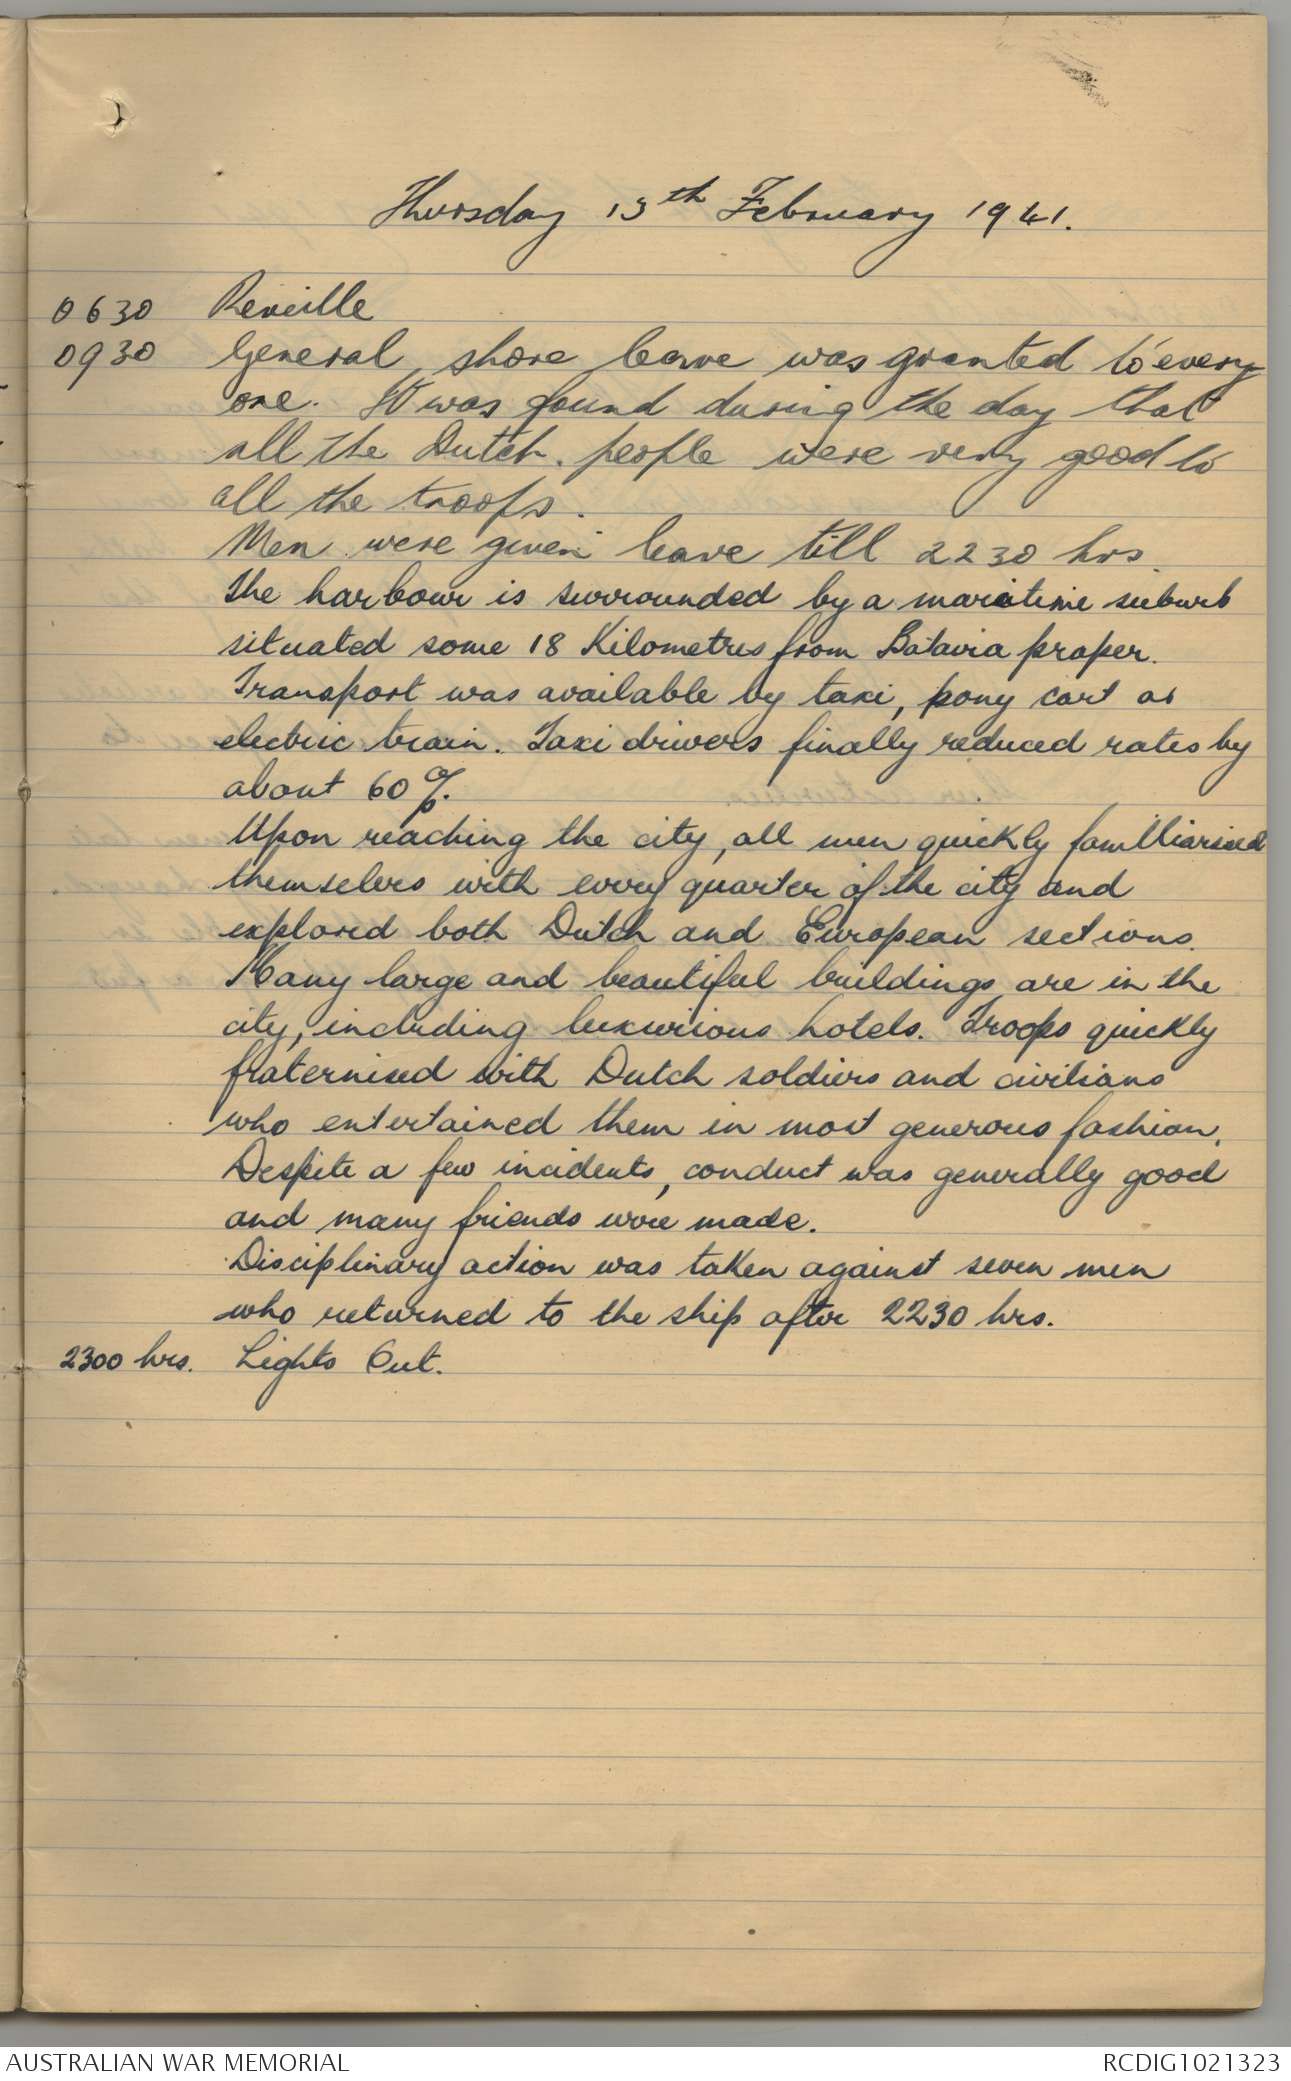 Thursday 13th February 1941.
0630 Reveille
0930 General shore leave was granted to every
one. It was found during the day that
all the Dutch. people were very good to
all the troops.
Men were given leave till 2230 hrs.
The harbour is surrounded by a maritime suburb
situated some 18 Kilometres from Batavia proper.
Transport was available by taxi, pony cart or
electric train. Taxi drivers finally reduced rates by
about 60%.
Upon reaching the city, all men quickly familliarised
themselves with every quarter of the city and
explored both Dutch and European sections.
Many large and beautiful buildings are in the
city, including luxurious hotels. Troops quickly
fraternised with Dutch soldiers and civilians
who entertained them in most generous fashion.
Despite a few incidents, conduct was generally good
and many friends were made.
Disciplinary action was taken against seven men
who returned to the ship after 2230 hrs.
2300 hrs. Lights Out.
AUSTRALIAN WAR MEMORIAL RCDIG1021323